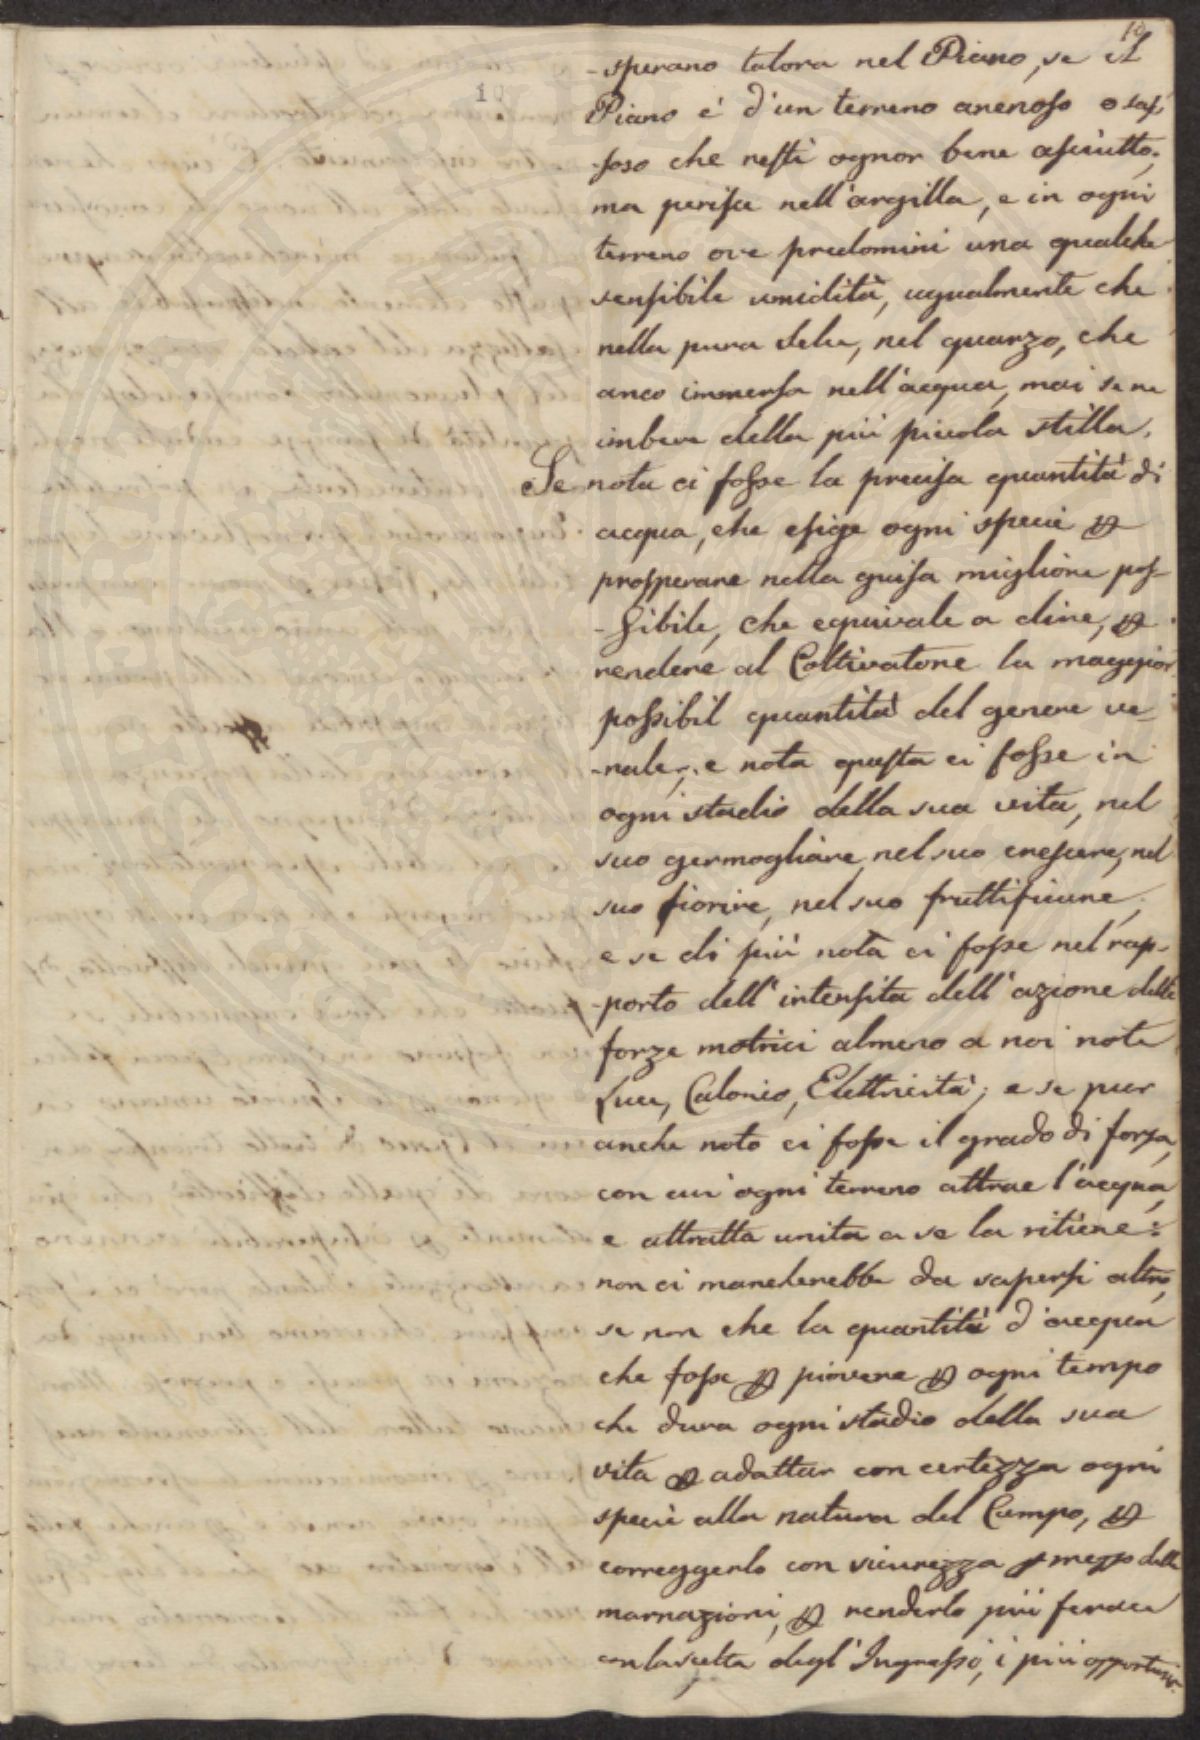 10
10
-sperano talora nel Piano, se il
Piano é d'un terreno arenoso o sas-
-soso che resti ognor bene asciutto;
ma perisce nell'argilla, e in ogni
terreno ove predomini una qualche
sensibile umidità, ugualmente che
nella pura selce, nel quarzo, che
anco immersa nell'acqua, mai se ne
imbeve della più piccola stilla.
Se nota ci fosse la precisa quantità di
acqua, che esige ogni specie p
prosperare nella guisa migliore pos-
-sibile, che equivale a dire, p
rendere al Coltivatore la maggior
possibil quantità del genere ve-
-nale; e nota questa ci fosse in
ogni stadio della sua vita, nel
suo germogliare, nel suo crescere, nel
suo fiorire, nel suo fruttificare,
e se di più nota ci fosse nel rap-
-porto dell'intensita dell'azione delle
forze motrici almeno a noi note
Luce, Calorico, Elettricità; e se pur
anche noto ci fosse il grado di forza,
con cui ogni terreno attrae l'acqua,
e attratta unita a se la ritiene:
non ci mancherebbe da sapersi altro,
se non che la quantità d'acqua
che fosse p piovere p ogni tempo
che dura ogni stadio della sua
vita p adattar con certezza ogni
specie alla natura del Campo, p
correggerlo con sicurezza p mezzo delle
marnazioni, p renderlo più ferace
con la scelta degl'Ingrassi, i più opportuni.